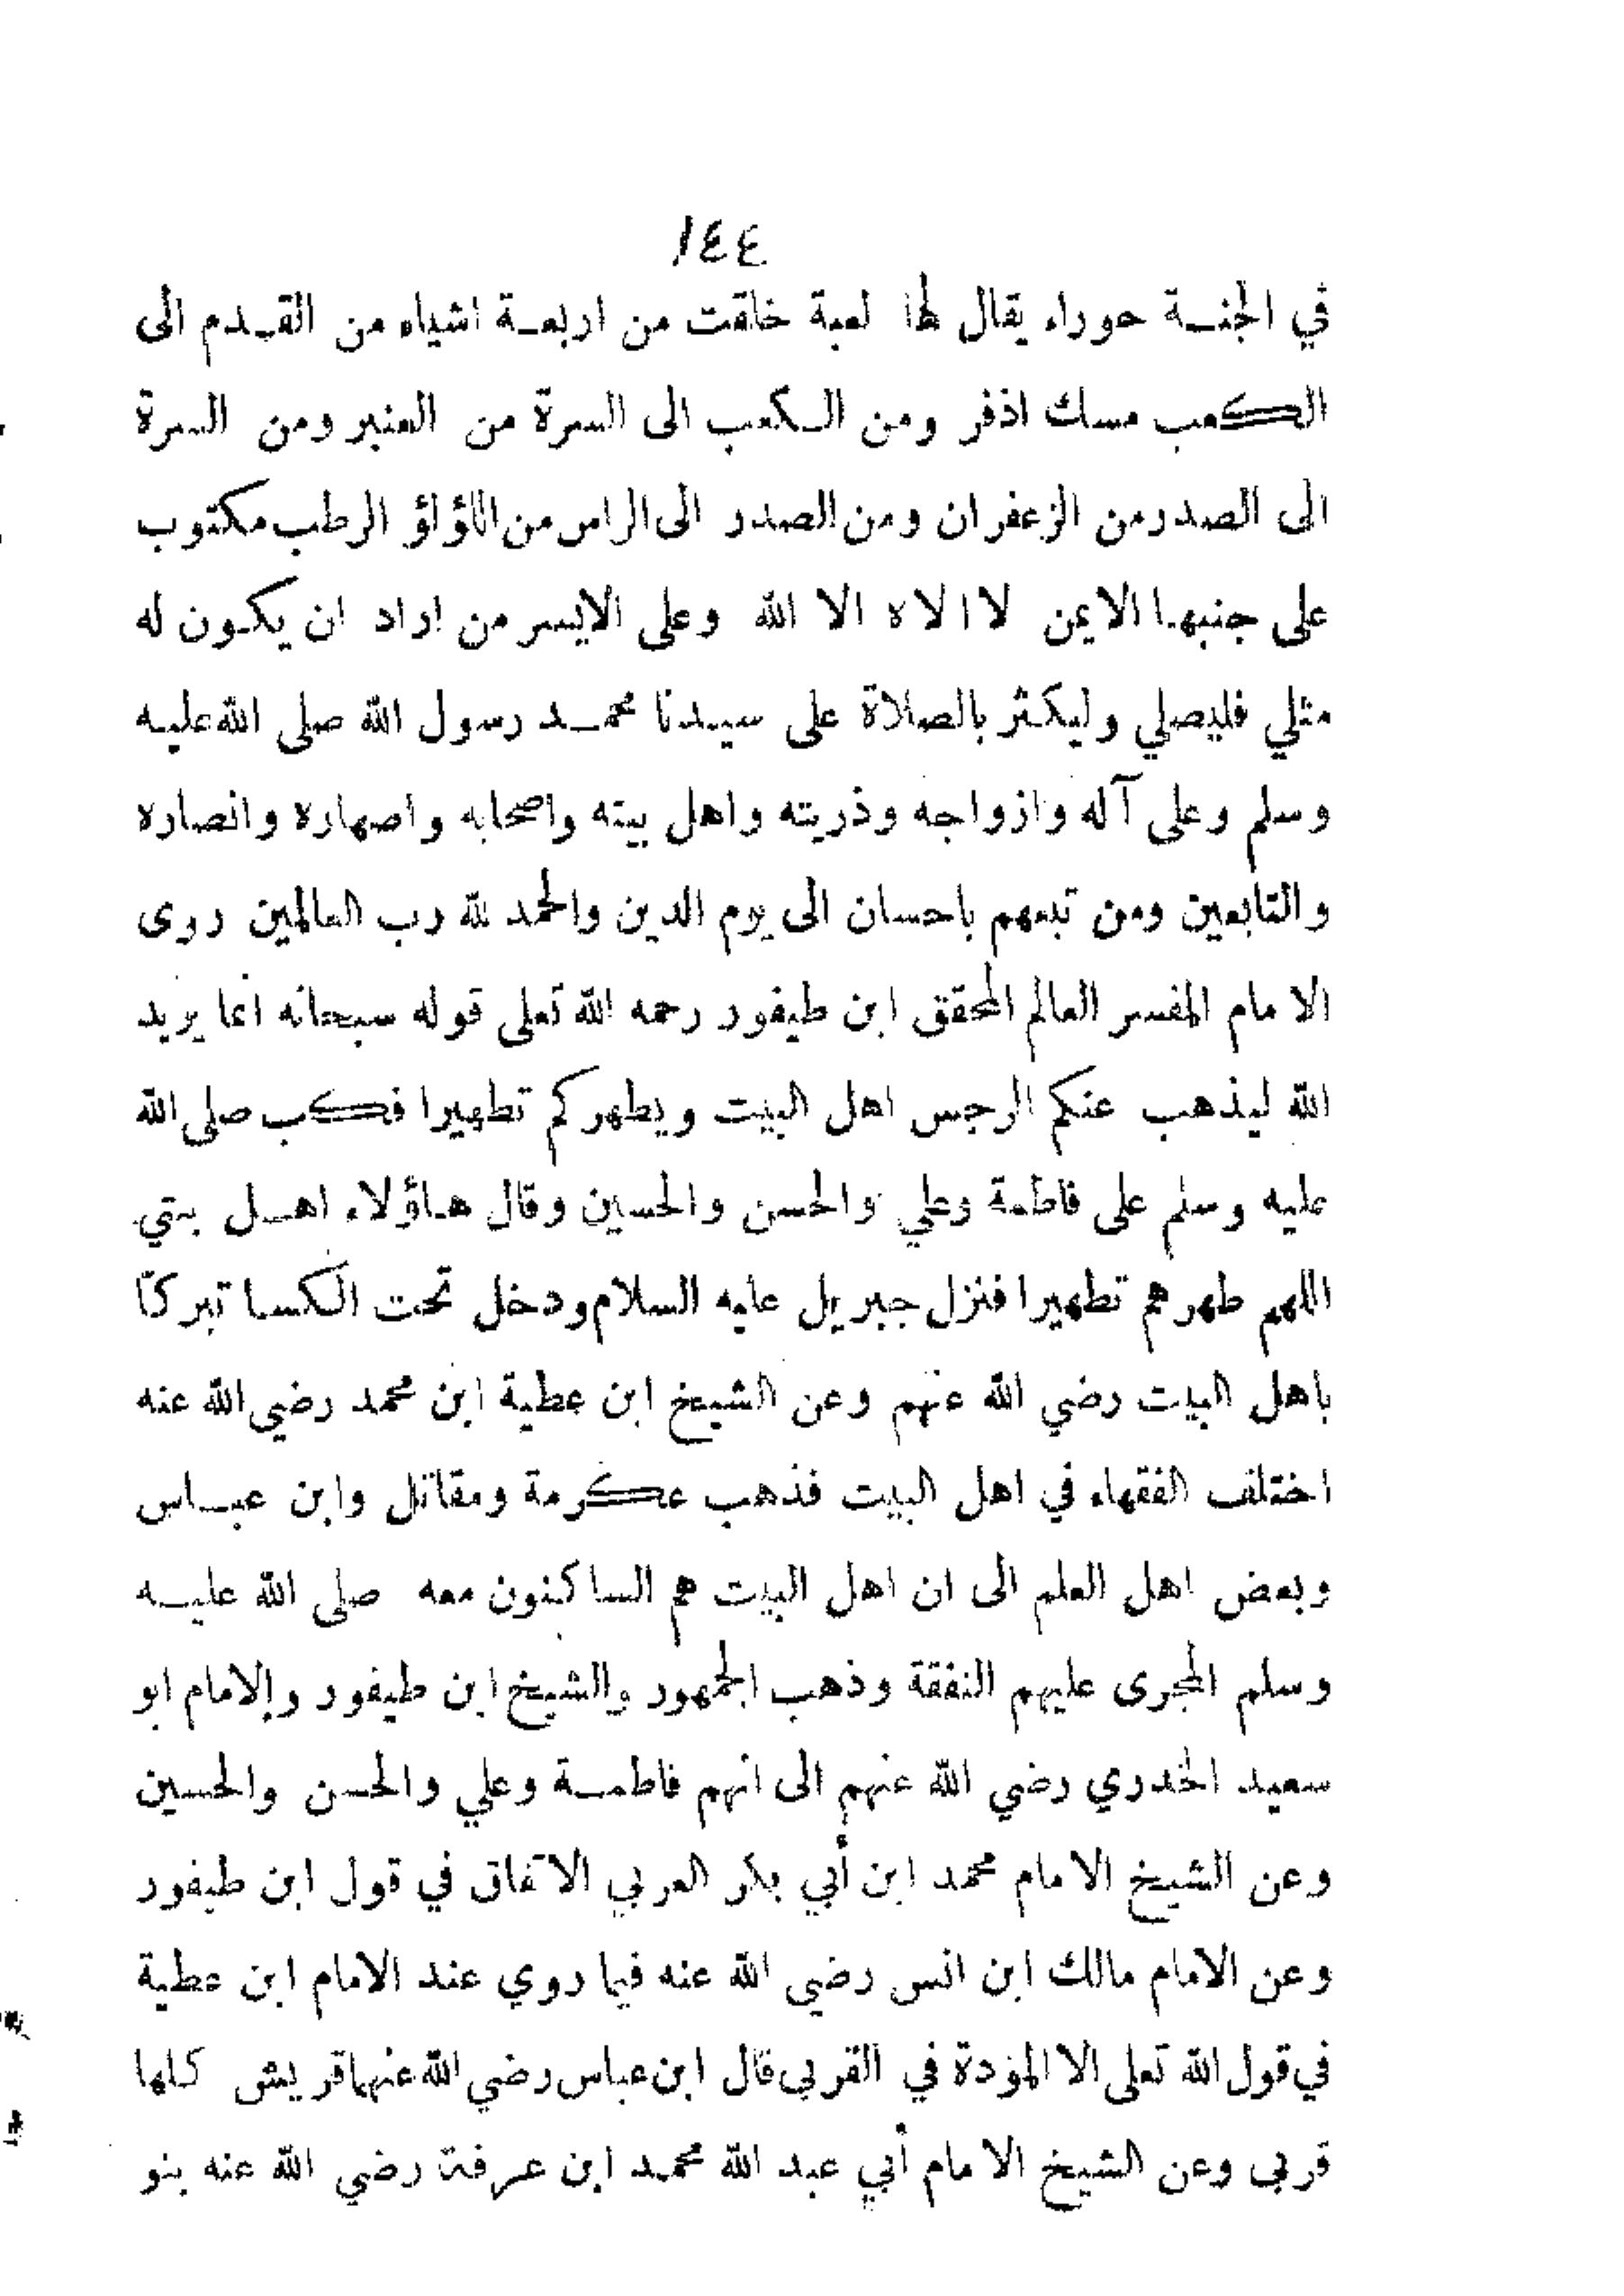 ١٤٤
في الجنة حوراء يقال لها لعبة خلقت من اربعة اشياء من القدم الى
الكعب مسك اذفر ومن الكعب الى السرة من العنبر ومن السرة
الى الصدر من الزعفران ومن الصدر الى الراس من اللؤلؤ الرطب مكتوب
على جنبها الايمن لا الاه الا الله وعلى الايسر من اراد ان يكون له
مثلي فليصلي وليكثر بالصلاة على سيدنا محمد رسول الله صلى الله عليه
وسلم وعلى آله وازواجه وذريته واهل بيته واصحابه واصهاره وانصاره
والتابعين ومن تبعهم باحسان الى يوم الدين والحمد لله رب العالمين روى
الامام المفسر العالم المحقق ابن طيفور رحمه الله تعلى قوله سبحانه انما يريد
الله ليذهب عنكم الرجس اهل البيت ويطهركم تطهيرا فكب صلى الله
عليه وسلم على فاطمة وعلي والحسن والحسين وقال هاؤلاء اهل بيتي
اللهم طهرهم تطهيرا فنزل جبريل عليه السلام ودخل تحت الكسا تبركا
باهل البيت رضي الله عنهم وعن الشيخ ابن عطية ابن محمد رضي الله عنه
اختلف الفقهاء في اهل البيت فذهب عكرمة ومقاتل وابن عباس
وبعض اهل العلم الى ان اهل البيت هم الساكنون معه صلى الله عليه
وسلم المجرى عليهم النفقة وذهب الجمهور والشيخ ابن طيفور والامام ابو
سعيد الخدري رضي الله عنهم الى انهم فاطمة وعلي والحسن والحسين
وعن الشيخ الامام محمد ابن أبي بكر العربي الاتفاق في قول ابن طيفور
وعن الامام مالك ابن انس رضي الله عنه فيما روي عند الامام ابن عطية
في قول الله تعلى الا المؤدة في القربى قال ابن عباس رضي الله عنهما قريش كلها
قربى وعن الشيخ الامام أبي عبد الله محمد ابن عرفة رضي الله عنه بنو